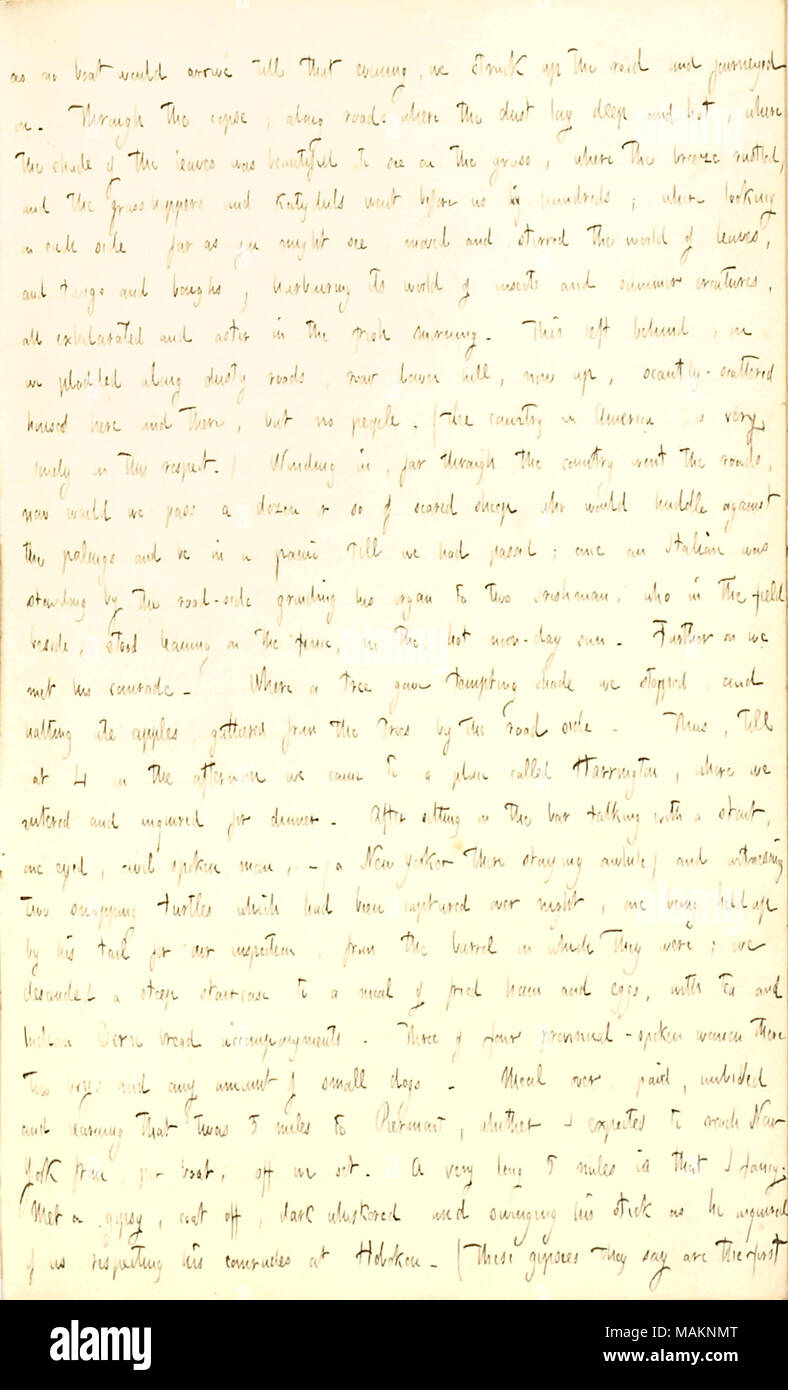 as no boat would arrive till that evening, we struck up the road and journeyed
on. Through the copse, along roads where the dust lay deep and hot, where
the shade of the leaves was beautiful to see on the grass, where the breeze rustled,
and the grasshoppers and katydids went before us by hundreds; where looking
on each side far as you might see moved and stirred the world of leaves,
and twigs and boughs, harbouring its world of insects and summer creatures,
all exhilarated and astir in the fresh morning. This left behind, on
we plodded along dusty roads, now down hill, now up, scantly-scattered
houses here and there, but no people. (The country in America is very
lonely in this respect.) Winding in, far through the country went the roads,
now would we pass a dozen or so of scared sheep who would huddle against
the palings and be in a panic till we had passed; once an Italian was
standing by the road-side grinding his organ to two Irishman, who in the field
beside, stood leaning on the fence, in the hot noon-day sun. Further on we
met his comrade. Where a tree gave tempting shade we stopped and
halting ate apples, gathered from the trees by the road side. Thus, till
at 4 in the afternoon we came to a place called Harrington, where we
entered and inquired for dinner. After sitting in the bar talking with a stout,
one eyed, civil spoken man, - (a New Yorker there staying awhile) and witnessing
two snapping turtles which had been captured over night, one being held up
by his tail for our inspection, from the barrel in which they were; we
descended a steep staircase to a meal of fried ham and eggs, with tea and
Indian Corn bread accompanyments. Three or four provincial-spoken women there
two boys and any amount of small dogs. Meal over, paid,
and learning that twas 5 miles to Piermont, whither I expected to reach New
York from, per boat, off we set. A very long 5 miles is that I fancy.
Met a gypsy, coat off, dark whiskered and swinging his stick as he inquired
of us respecting his comrades at Hoboken. (These gipsies they say are the first
alamy
Image ID: MAKNMT
www.alamy.com